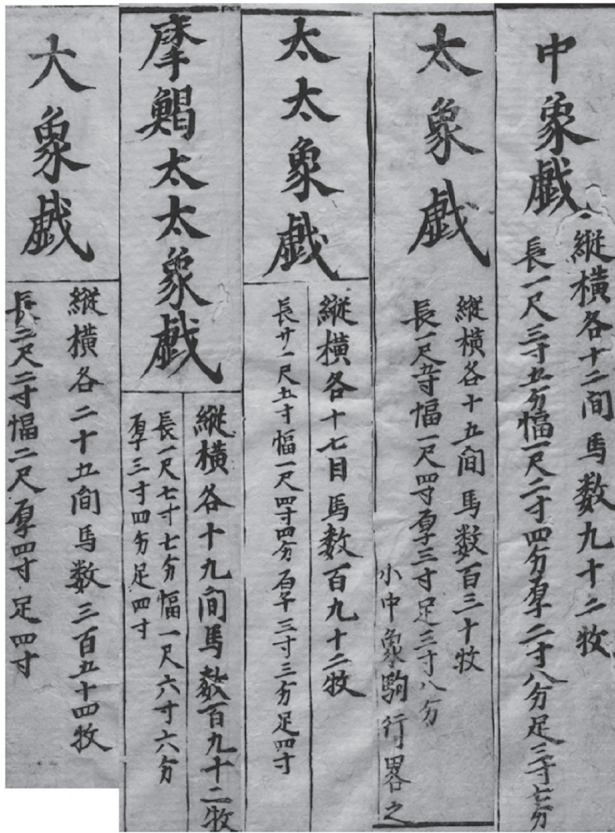 中象戯
縦横各十二間馬数九十二牧
長一尺三寸五分幅一尺二寸四分厚二寸八分足三寸七分
太象戯
縦横各十五間馬数百三十牧
長一尺五寸幅一尺四寸厚三寸足三寸八分
小中象駒行畧之
太太象戯
縦横各十七目馬数百九十二牧
長廿一尺五寸幅一尺四寸四分厚三寸三分足四寸
摩鞨太太象戯
縦横各十九间馬数百九十二牧
長一尺七寸七分幅一尺六寸六分
厚三寸四分足四寸
大象戯
縦横各二十五间馬数三百五十四牧
長二尺二寸幅二尺厚四寸足四寸